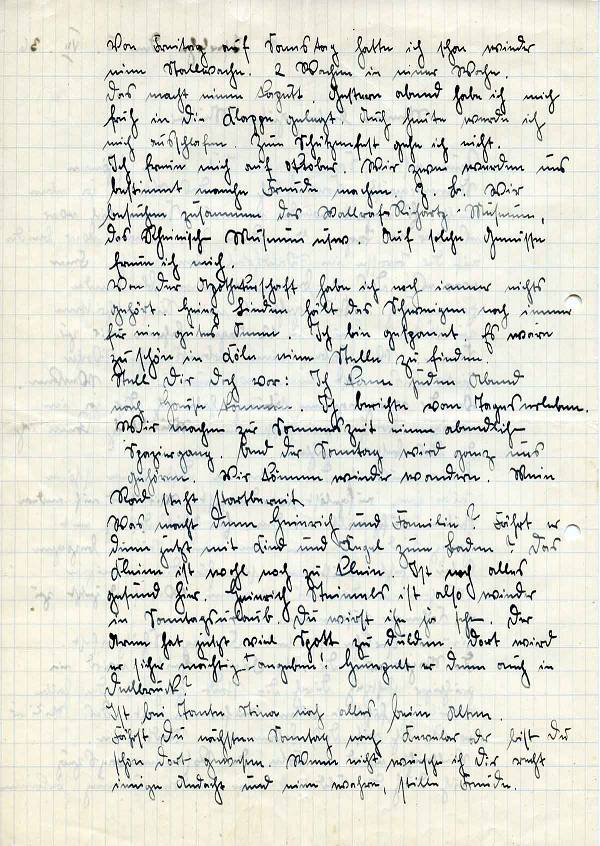 Von Freitag auf Samstag hatte ich schon wieder
eine Stallwache. 2 Wachen in einer Woche.
Das macht einen kaputt. Gestern abend habe ich mich
früh in die Klappe gelegt. Auch heute werde ich
mich ausschlafen. Zum Schützenfest gehe ich nicht.
Ich freue mich auf Oktober. Wir zwei werden uns
bestimmt manche Freude machen. Z. B. Wir
besuchen zusammen das Wallraf-Richartz-Museum,
das Rheinische Museum usw. Auf solche Genüsse
freue ich mich.
Von der Apothekerschaft habe ich noch immer nichts
gehört. Heinz Linden hält das Schweigen noch immer
für ein gutes Omen. Ich bin gespannt. Es wäre
zu schön in Köln eine Stelle zu finden.
Stell Dir doch vor: Ich kann jeden Abend
nach Hause kommen. Ich berichte vom Tageserleben.
Wir machen zur Sommerszeit einen abendlich
Spaziergang. Und der Sonntag wird ganz uns
gehören. Wir können wieder wandern. Mein
Rad steht startbereit.
Was macht denn Heinrich und Familie? Fährt er
denn jetzt mit Kind und Kegel zum Baden? Das
Kleine ist wohl noch zu klein. Ist noch alles
gesund hier. Heinrich ist also wieder
in Sonntagsurlaub. Du wirst ihn ja sehn. Der
Arme hat jetzt viel Spott zu dulden. Dort wird
er sicher mächtig angeben! er denn auch in
?
Ist bei Tante Stina noch alles beim Alten.
Fährst Du nächsten Sonntag nach Kevelar oder bist Du
schon dort gewesen. Wenn nicht wünsche ich Dir recht
innige Andacht und eine wahre, stille Freude.